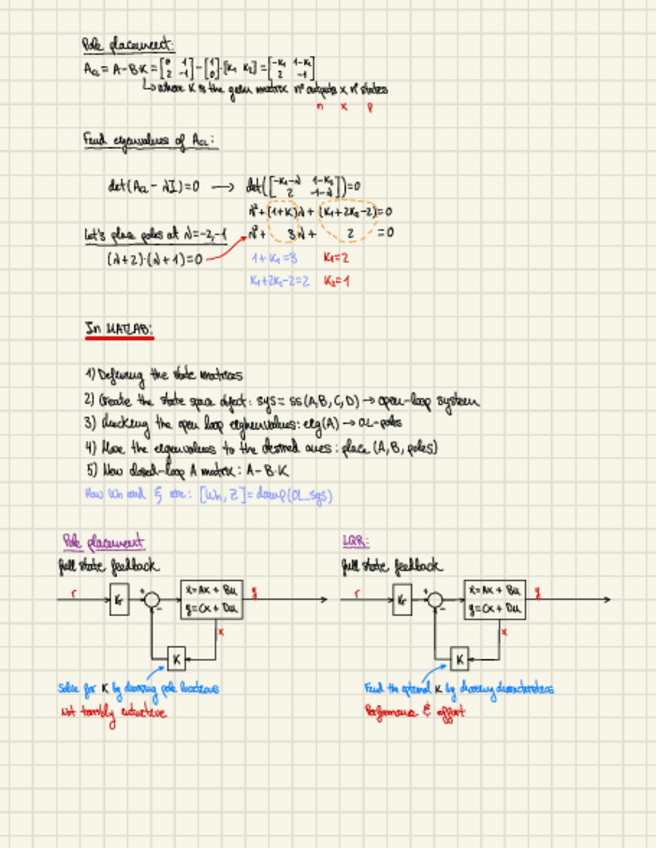 Pole placement:
A_CL = A-B·K = [0 1; 2 -1] - [1; 0]·[K₁ K₂] = [-K₁ 1-K₂; 2 -1]
↳ where K is the gain matrix nº outputs x nº states
n x p
Find eigenvalues of A_CL:
det(A_CL - λI)=0 → det([-K₁-λ 1-K₂; 2 -1-λ])=0
λ²+(1+K₁)λ+(K₁+2K₂-2)=0
Let's place poles at λ=-2,-1
λ²+ 3λ+ 2 =0
(λ+2)·(λ+1)=0
1+K₁=3 K₁=2
K₁+2K₂-2=2 K₂=1
In MATLAB:
1) Defining the state matrices
2) Create the state space object: sys= ss(A,B,C,D) → open-loop system
3) checking the open loop eigenvalues: eig(A) → OL-poles
4) Move the eigenvalues to the desired ones: place (A,B, poles)
5) New closed-loop A matrix: A-B·K
How Wn and ξ are: [Wn, Z]=damp(OL_sys)
Pole placement
full state feedback
r Kr + - ẋ=Ax + Bu y
y=Cx + Du
x
K
Solve for K by choosing pole locations
Not terribly intuitive
LQR:
full state feedback
r Kr + - ẋ=Ax + Bu y
y=Cx + Du
x
K
Find the optimal K by choosing characteristics
Performance & effort